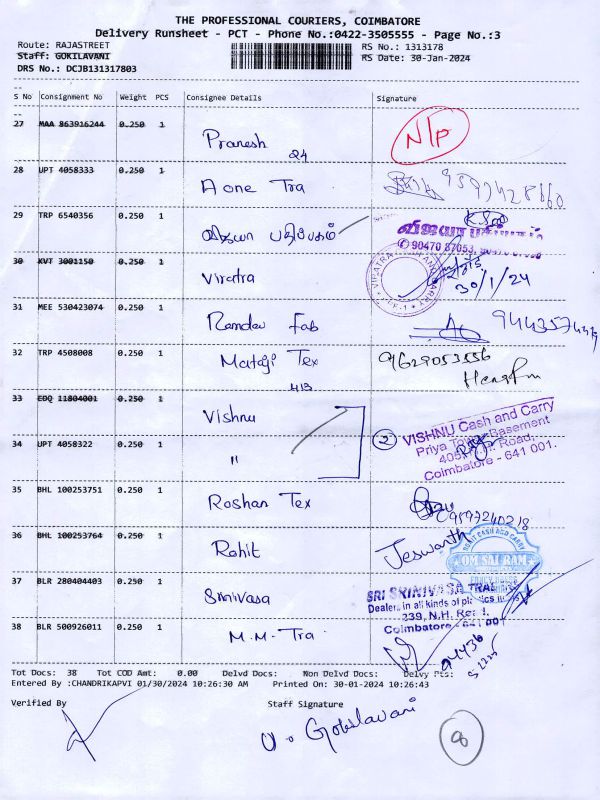 THE PROFESSIONAL COURIERS, COIMBATORE
Delivery Runsheet - PCT - Phone No.:0422-3505555 - Page No.:3
Route: RAJASTREET
RS No.: 1313178
Staff: GOKILAVANI
RS Date: 30-Jan-2024
DRS No.: DCJB131317803
S No Consignment No Weight PCS Consignee Details Signature
27 MAA 863916244 0.250 1 Pranesh N/P
24
28 UPT 4058333 0.250 1 A one Tra
29 TRP 6540356 0.250 1 விஜயா பதிப்பகம்
விஜயா பதிப்பகம்
✆ 90470 87053,
30 KVT 3001150 0.250 1 Viratra
30/1/24
31 MEE 530423074 0.250 1 Ramdev Fab
32 TRP 4508008 0.250 1 Mataji Tex 9629053556
413
33 EDQ 11804001 0.250 1 Vishnu
2 VISHNU Cash and Carry
Basement
Road,
Coimbatore - 641 001.
34 UPT 4058322 0.250 1 "
35 BHL 100253751 0.250 1 Roshan Tex
9597240218
36 BHL 100253764 0.250 1 Rohit Jeswanth
OM SAI RAM
37 BLR 280404403 0.250 1 Srinivasa
SRI SRINIVASA TRA
Dealers in all kinds of
239, N.H. Road,
Coimbatore - 641 001
38 BLR 500926011 0.250 1 M.M-Tra
94436
Tot Docs: 38 Tot COD Amt: 0.00 Delvd Docs: Non Delvd Docs: Delvy Pts:
Entered By :CHANDRIKAPVI 01/30/2024 10:26:30 AM Printed On: 30-01-2024 10:26:43
Verified By Staff Signature
V. Gokilavani
8